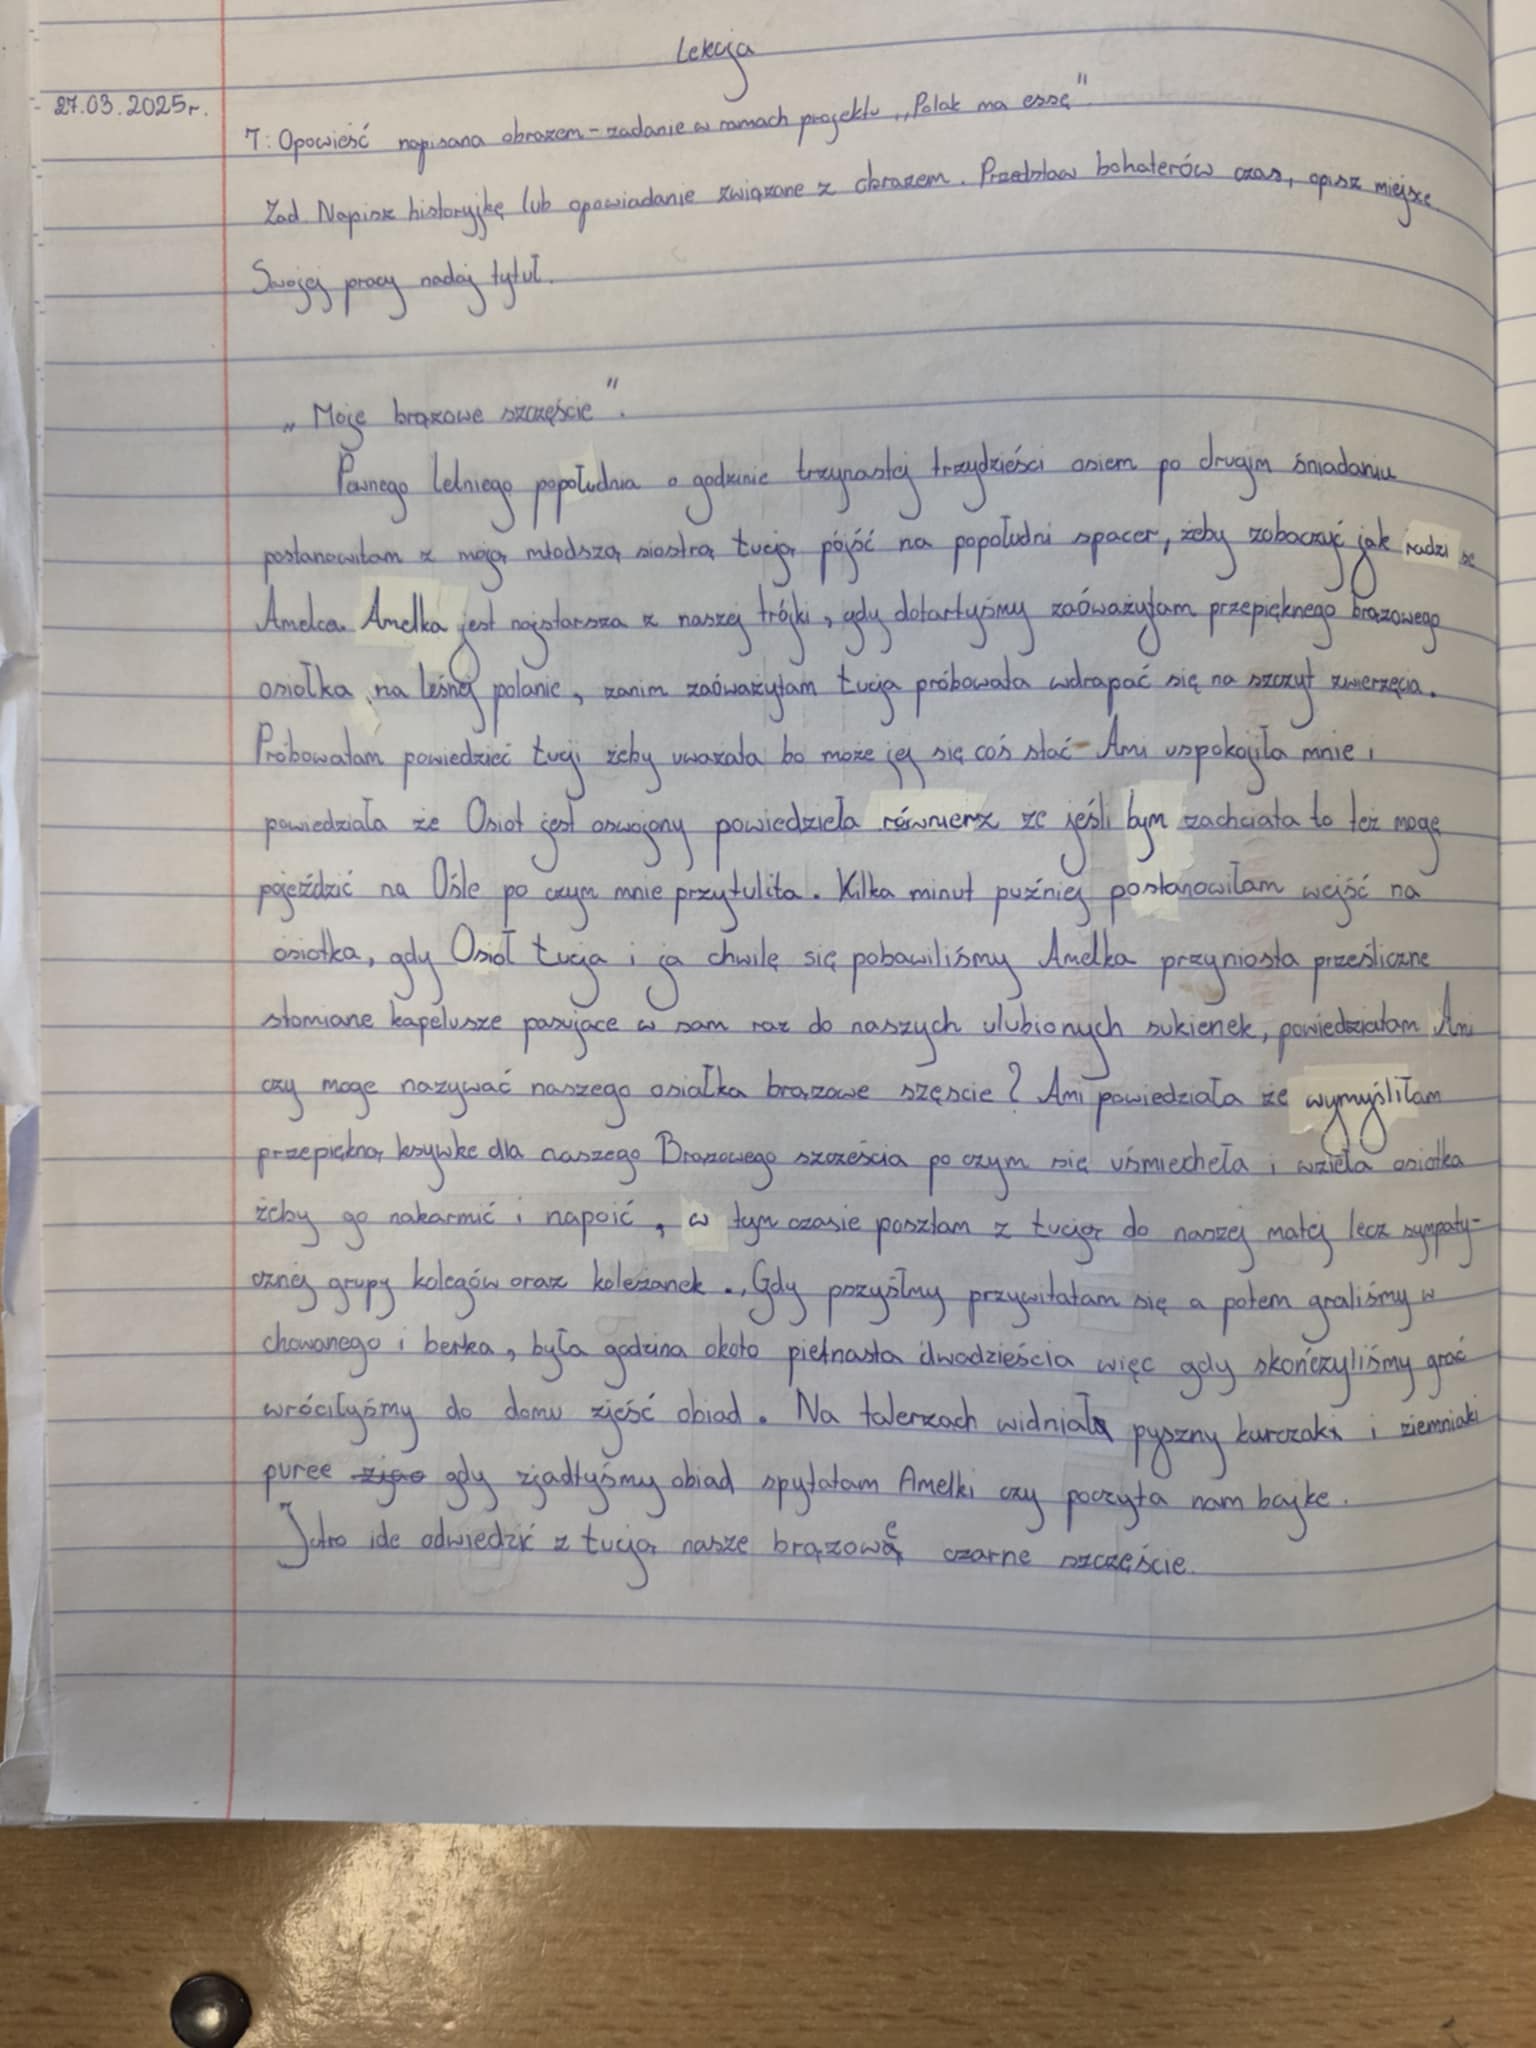 Lekcja
27.03.2025r.
T: Opowieść napisana obrazem - zadanie w ramach projektu „Polak ma essę".
Zad. Napisz historyjkę lub opowiadanie związane z obrazem. Przedstaw bohaterów czas, opisz miejsce.
Swojej pracy nadaj tytuł.
„Moje brązowe szczęście".
Pewnego letniego popołudnia o godzinie trzynastej trzydzieści osiem po drugim śniadaniu
postanowiłam z moją młodszą siostrą Łucją pójść na popołudni spacer, żeby zobaczyć jak radzi se
Amelca. Amelka jest najstarsza z naszej trójki, gdy dotarłyśmy zaóważyłam przepięknego brązowego
osiołka na leśnej polanie, zanim zaóważyłam Łucja próbowała wdrapać się na szczyt zwierzęcia.
Próbowałam powiedzieć Łucji żeby uważała bo może jej się coś stać- Ami uspokojiła mnie i
powiedziała że Osioł jest oswojony powiedziela równierz że jeśli bym zachciała to też mogę
pojeździć na Ośle po czym mnie przytuliła. Kilka minut puźniej postanowiłam wejść na
osiołka, gdy Osioł Łucja i ja chwilę się pobawiliśmy Amelka przyniosła prześliczne
słomiane kapelusze pasujące w sam raz do naszych ulubionych sukienek, powiedziałam Ami
czy moge nazywać naszego osiałka brązowe szęscie? Ami powiedziała że wymyśliłam
przepiękną ksywke dla naszego Brązowego szcześcia po czym się uśmiecheła i wzieła osiołka
żeby go nakarmić i napoić, w tym czasie poszłam z Łucją do naszej małej lecz sympaty-
cznej grupy kolegów oraz koleżanek., Gdy przyszłmy przywitałam się a potem graliśmy w
chowanego i berka, była godzina około pietnasta dwadzieścia więc gdy skończyliśmy grać
wróciłyśmy do domu zjeść obiad. Na talerzach widniała pyszny kurczaki i ziemniaki
puree gdy zjadłyśmy obiad spytałam Amelki czy poczyta nam bajke.
Jutro ide odwiedzić z Łucją nasze brązowe czarne szczęście.